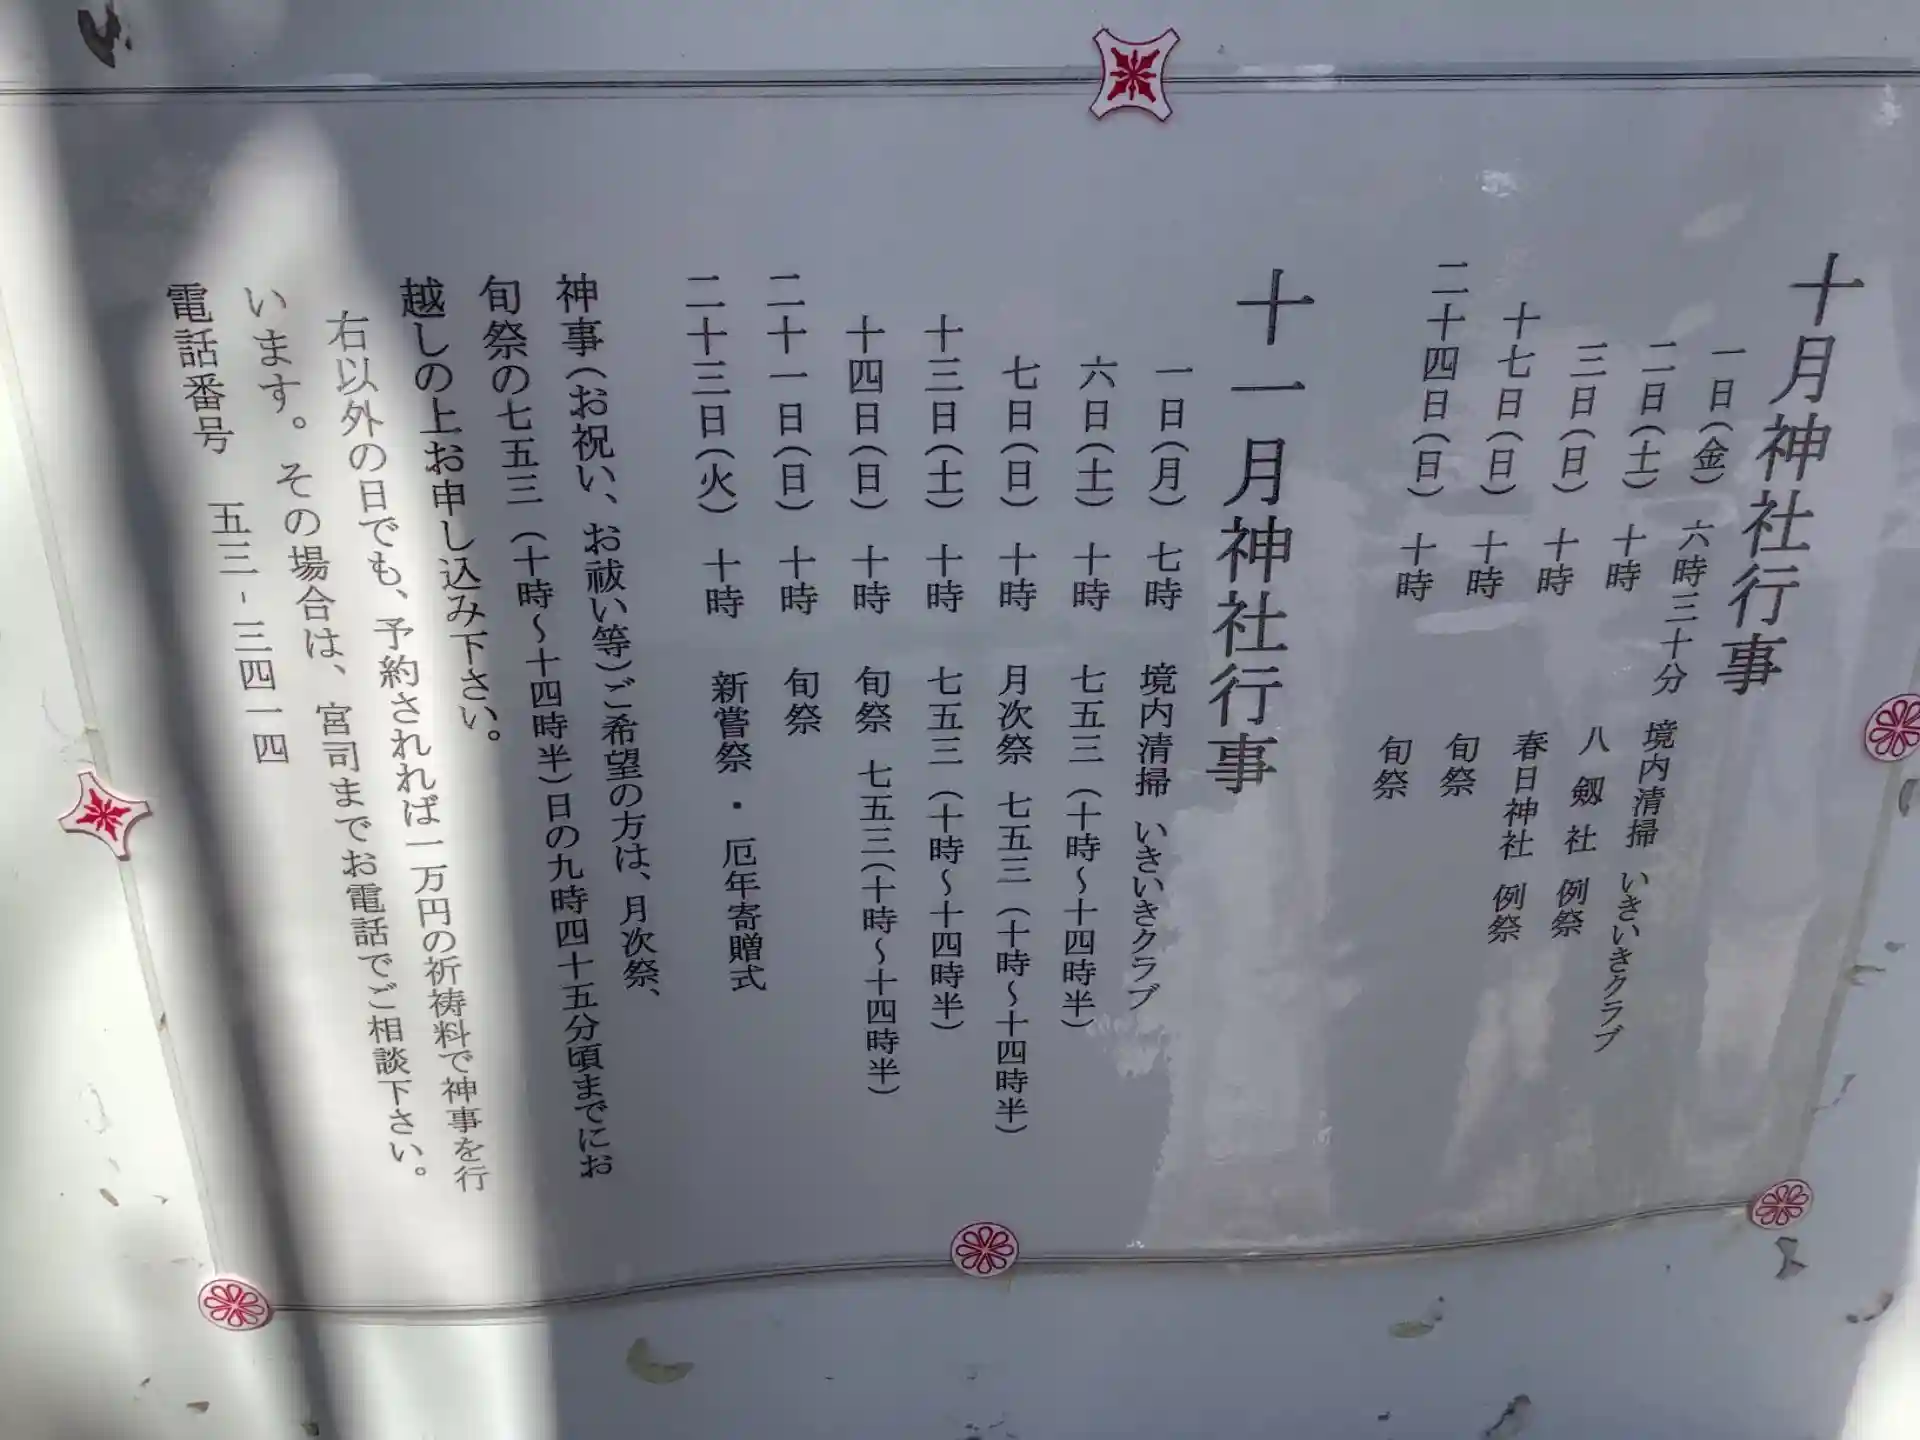 十月神社行事
一日（金） 六時三十分 境内清掃 いきいきクラブ
二日（土） 十時 八剱社 例祭
三日（日） 十時 春日神社 例祭
十七日（日） 十時 旬祭
二十四日（日） 十時 旬祭
十一月神社行事
一日（月） 七時 境内清掃 いきいきクラブ
六日（土） 十時 七五三（十時～十四時半）
七日（日） 十時 月次祭 七五三（十時～十四時半）
十三日（土） 十時 七五三（十時～十四時半）
十四日（日） 十時 旬祭 七五三（十時～十四時半）
二十一日（日） 十時 旬祭
二十三日（火） 十時 新嘗祭・厄年寄贈式
神事（お祝い、お祓い等）ご希望の方は、月次祭、
旬祭の七五三（十時～十四時半）日の九時四十五分頃までにお
越しの上お申し込み下さい。
右以外の日でも、予約されれば一万円の祈祷料で神事を行
います。その場合は、宮司までお電話でご相談下さい。
電話番号 五三-三四一四